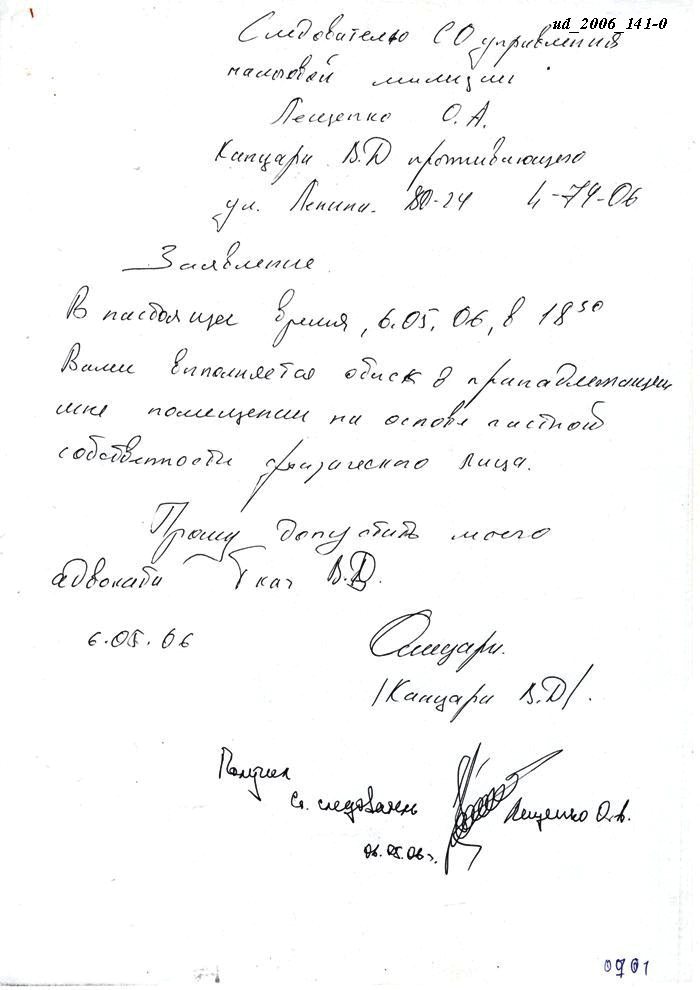 ud_2006_141-0
Следователю СО управления
налоговой милиции
Лещенко О.А.
Капцари В.Д проживающего
ул. Ленина. 80-24 4-74-06
Заявление
В настоящее время, 6.05.06, в 18 30
Вами выполняется обыск в принадлежащем
мне помещении на основе частной
собственности физического лица.
Прошу допустить моего
адвоката Ткач В.Д.
6.05.06
/Капцари В.Д/.
Получил
Ст. следователь Лещенко О.А.
06.05.06 г.
0701